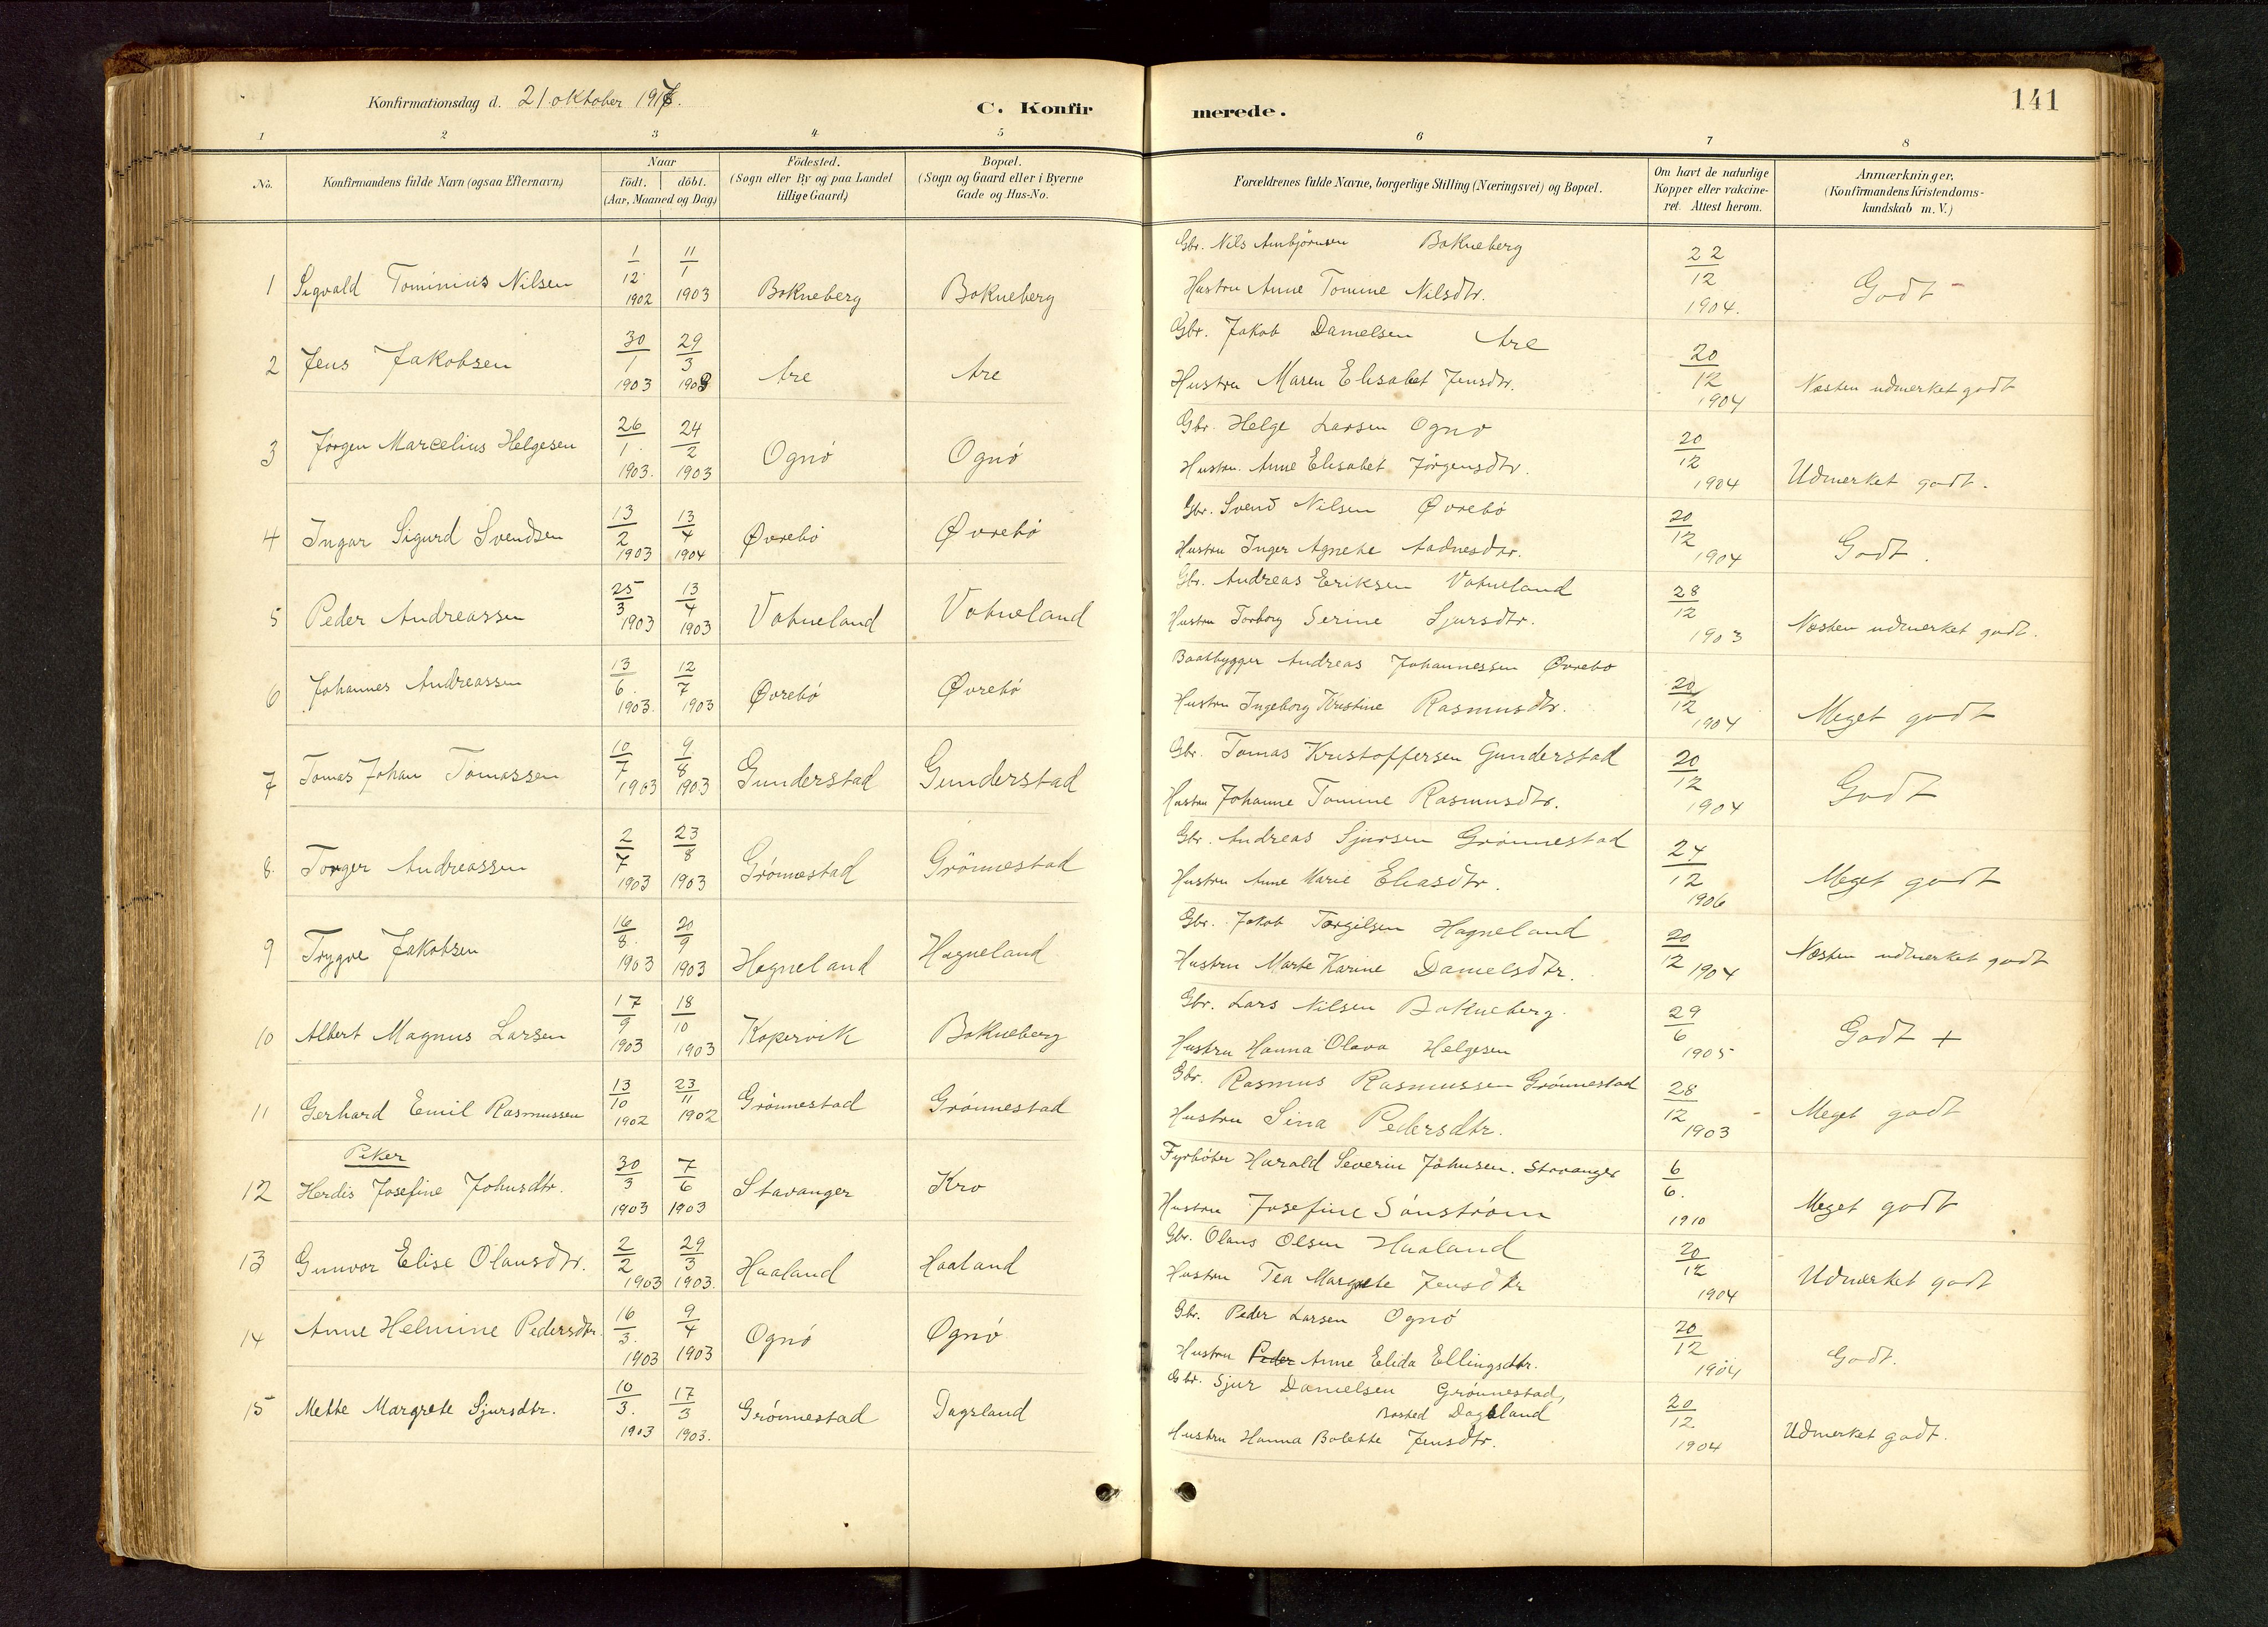 Konfirmationsdag d. 21. oktober 1917.
C. Konfirmerede.
141
1 2 3 4 5 6 7 8
No.
Konfirmandens fulde Navn (ogsaa Efternavn)
Naar
födt. döbt.
(Aar, Maaned og Dag)
Födested.
(Sogn eller By og paa Landet
tillige Gaard)
Bopæl.
(Sogn og Gaard eller i Byerne
Gade og Hus-No.
Forældrenes fulde Navne, borgerlige Stilling (Næringsvei) og Bopæl.
Om havt de naturlige
Kopper eller vakcine-
ret. Attest herom.
Anmærkninger.
(Konfirmandens Kristendoms-
kundskab m. V.)
1 Sigvald Tominius Nilsen 1/12 1902 11/1 1903 Bokneberg Bokneberg
Gbr. Nils Ambjörnsen Bokneberg
Hustru Anne Tomine Nilsdtr.
22/12 1904. Godt -
2 Jens Jakobsen 30/1 1903 29/3 1903 Are Are
Gbr. Jakob Danielsen Are
Hustru Maren Elisabet Jensdtr.
20/12 1904 Næsten udmerket godt
3 Jørgen Marcelius Helgesen 26/1 1903. 24/2 1903 Ognø Ognø
Gbr. Helge Larsen Ognø
Hustru. Anne Elisabet Jørgensdtr.
20/12 1904 Udmerket godt.
4 Ingar Sigurd Svendsen 13/2 1903 13/4 1904 Øvrebø Øvrebø
Gbr. Svend Nilsen Øvrebø
Hustru Inger Agnete Aadnesdtr.
20/12 1904 Godt.
5 Peder Andreassen 25/3 1903 13/4 1903 Vatneland Vatneland
Gbr. Andreas Eriksen Vatneland
Hustru Torborg Serine Sjursdtr.
28/12 1903 Næsten udmerket godt.
6 Johannes Andreassen 13/6. 1903. 12/7 1903 Øvrebø Øvrebø
Baatbygger Andreas Johannessen Øvrebø
Hustru Ingeborg Kristine Rasmusdtr.
20/12 1904 Meget godt
7 Tomas Johan Tomassen 10/7 1903 9/8 1903 Gunderstad Gunderstad
Gbr. Tomas Kristoffersen Gunderstad
Hustru Johanne Tomine Rasmusdtr.
20/12 1904 Godt
8. Torger Andreassen 2/7 1903 23/8 1903 Grønnestad Grönnestad
Gbr. Andreas Sjursen Grönnestad
Hustru Anne Marie Eliasdtr.
24/12 1906 Meget godt
9 Trygve Jakobsen 16/8. 1903 20/9 1903 Hagneland Hagneland
Gbr. Jakob Torgilsen Hagneland
Hustru Marte Karine Danielsdtr.
20/12 1904 Næsten udmerket godt
10 Albert Magnus Larsen 17/9 1903 18/10 1903 Kopervik Bokneberg
Gbr. Lars Nilsen Bokneberg.
Hustru Hanna Olava Helgesen
29/6 1905 Godt +
11 Gerhard Emil Rasmussen 13/10 1902 23/11 1902 Grönnestad Grónnestad
Gbr. Rasmus Rasmussen Grónnestad
Hustru Sina Pedersdtr.
28/12 1903 Meget godt
Piker
12 Herdis Josefine Johnsdtr. 30/3 1903 7/6 1903 Stavanger Kro
Fyrbøter Harald Severin Johnsen. Stavanger
Hustru Josefine Sónström
6/6. 1910 Meget godt
13 Gunvor Elise Olausdtr. 2/2 1903 29/3 1903. Haaland Haaland
Gbr. Olaus Olsen Haaland
Hustru Tea Margrete Jensdtr
20/12 1904 Udmerket godt
14 Anne Helmine Pedersdtr. 16/3. 1903 9/4 1903 Ognø Ognø
Gbr. Peder Larsen Ognø
Hustru Peder Anne Elida Ellingsdtr.
20/12 1904 Godt.
15 Mette Margrete Sjursdtr. 10/3. 1903 17/3 1903. Grønnestad Dagsland
Gbr. Sjur Danielsen Grónnestad,
Bosted Dagsland
Hustru Hanna Bolette Jensdtr.
20/12 1904 Udmerket godt.